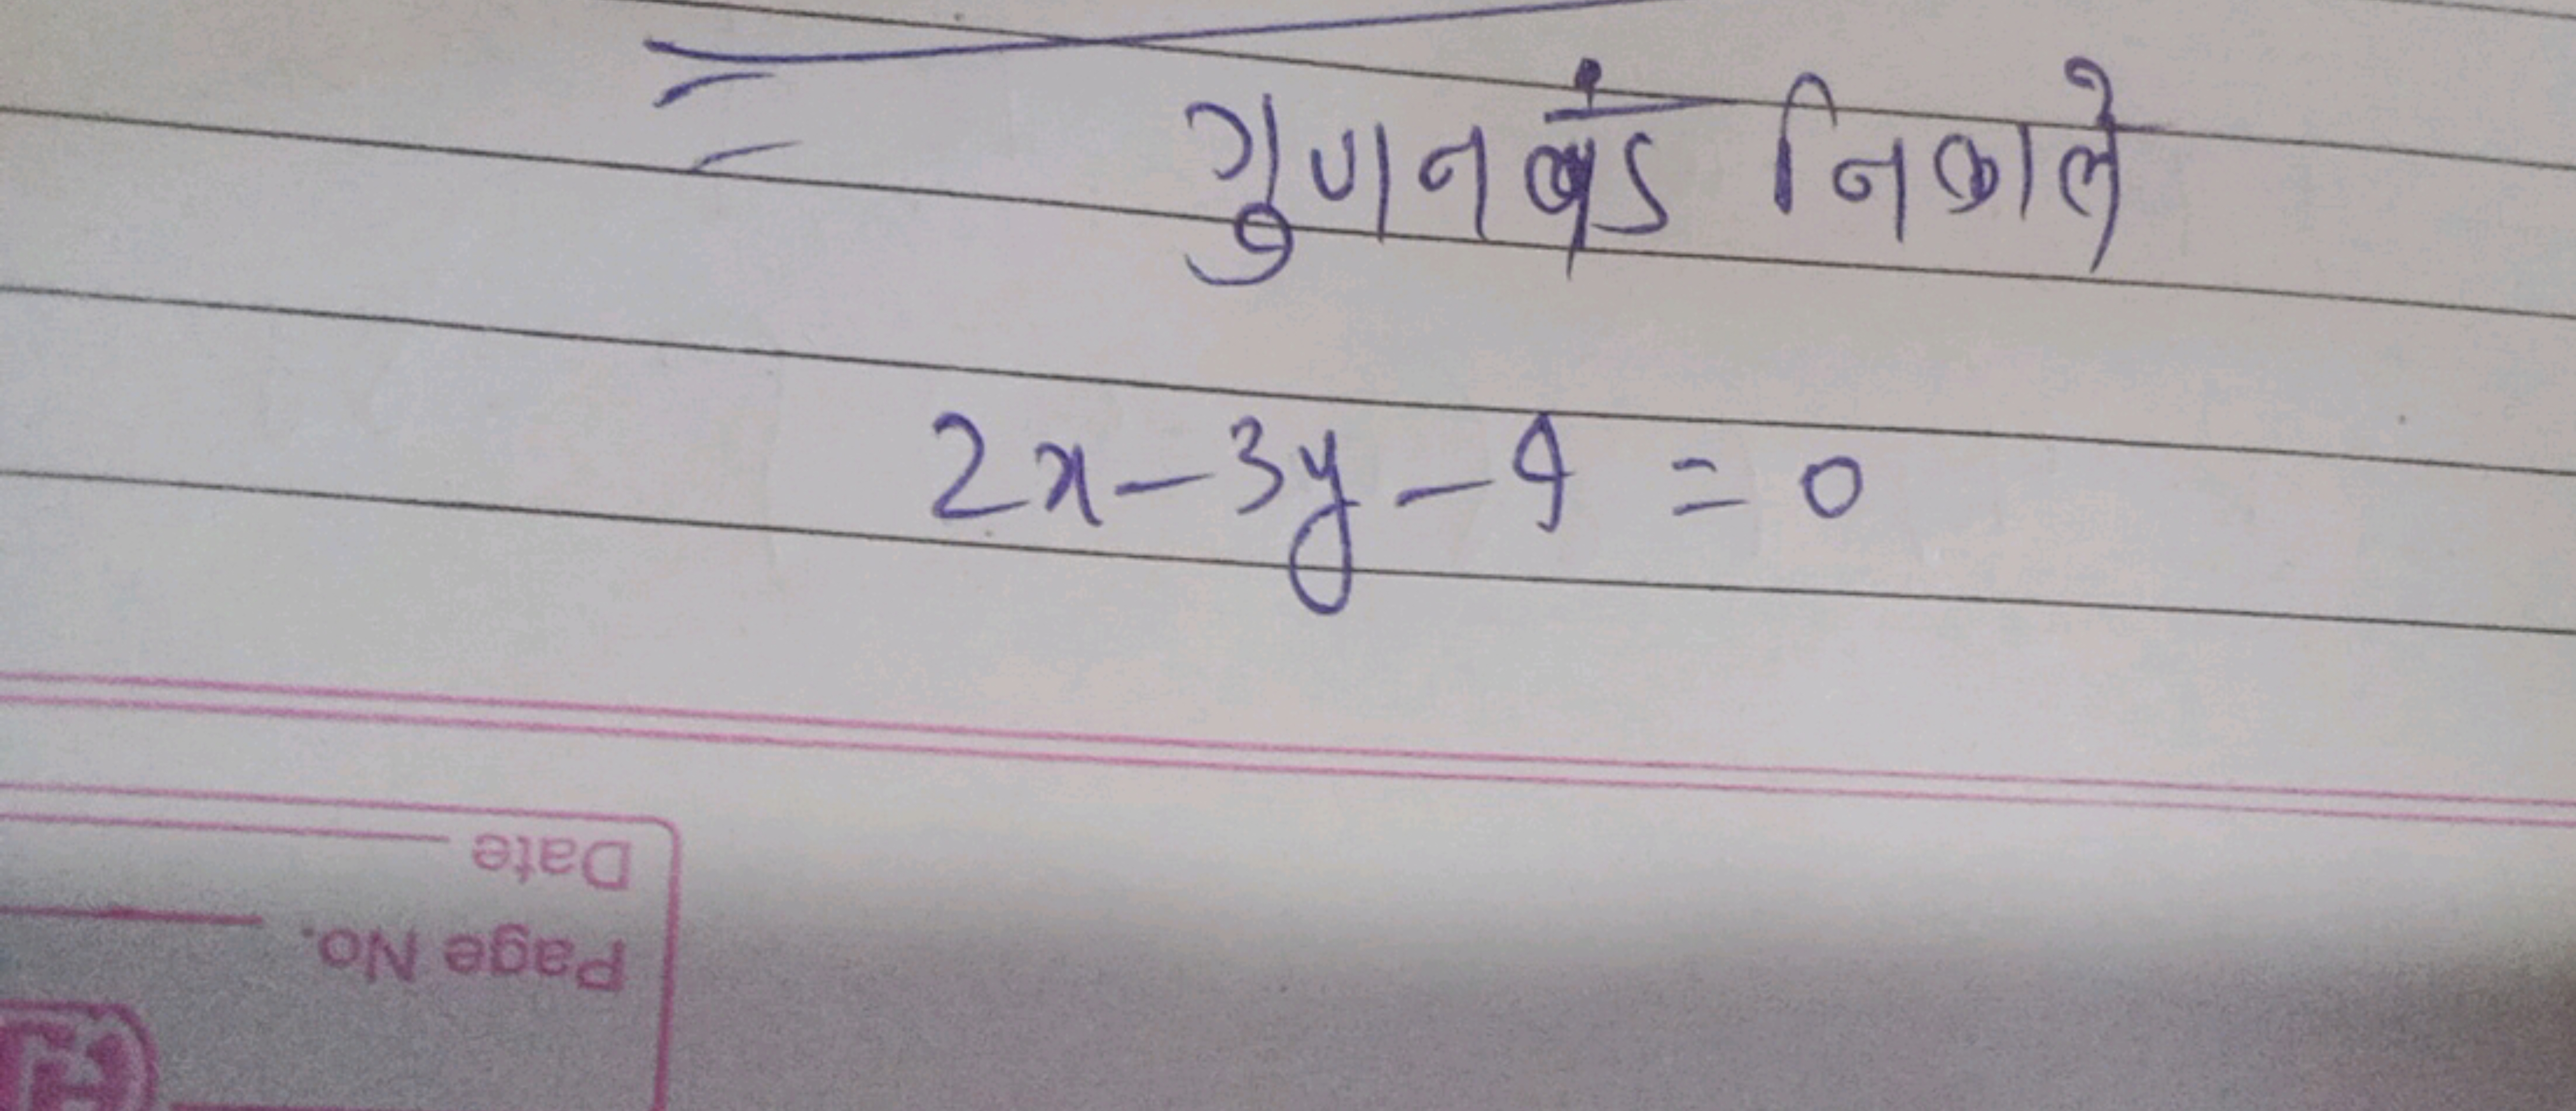 गुणनखंड निकाले
2x - 3y - 9 = 0
Date
Page No.